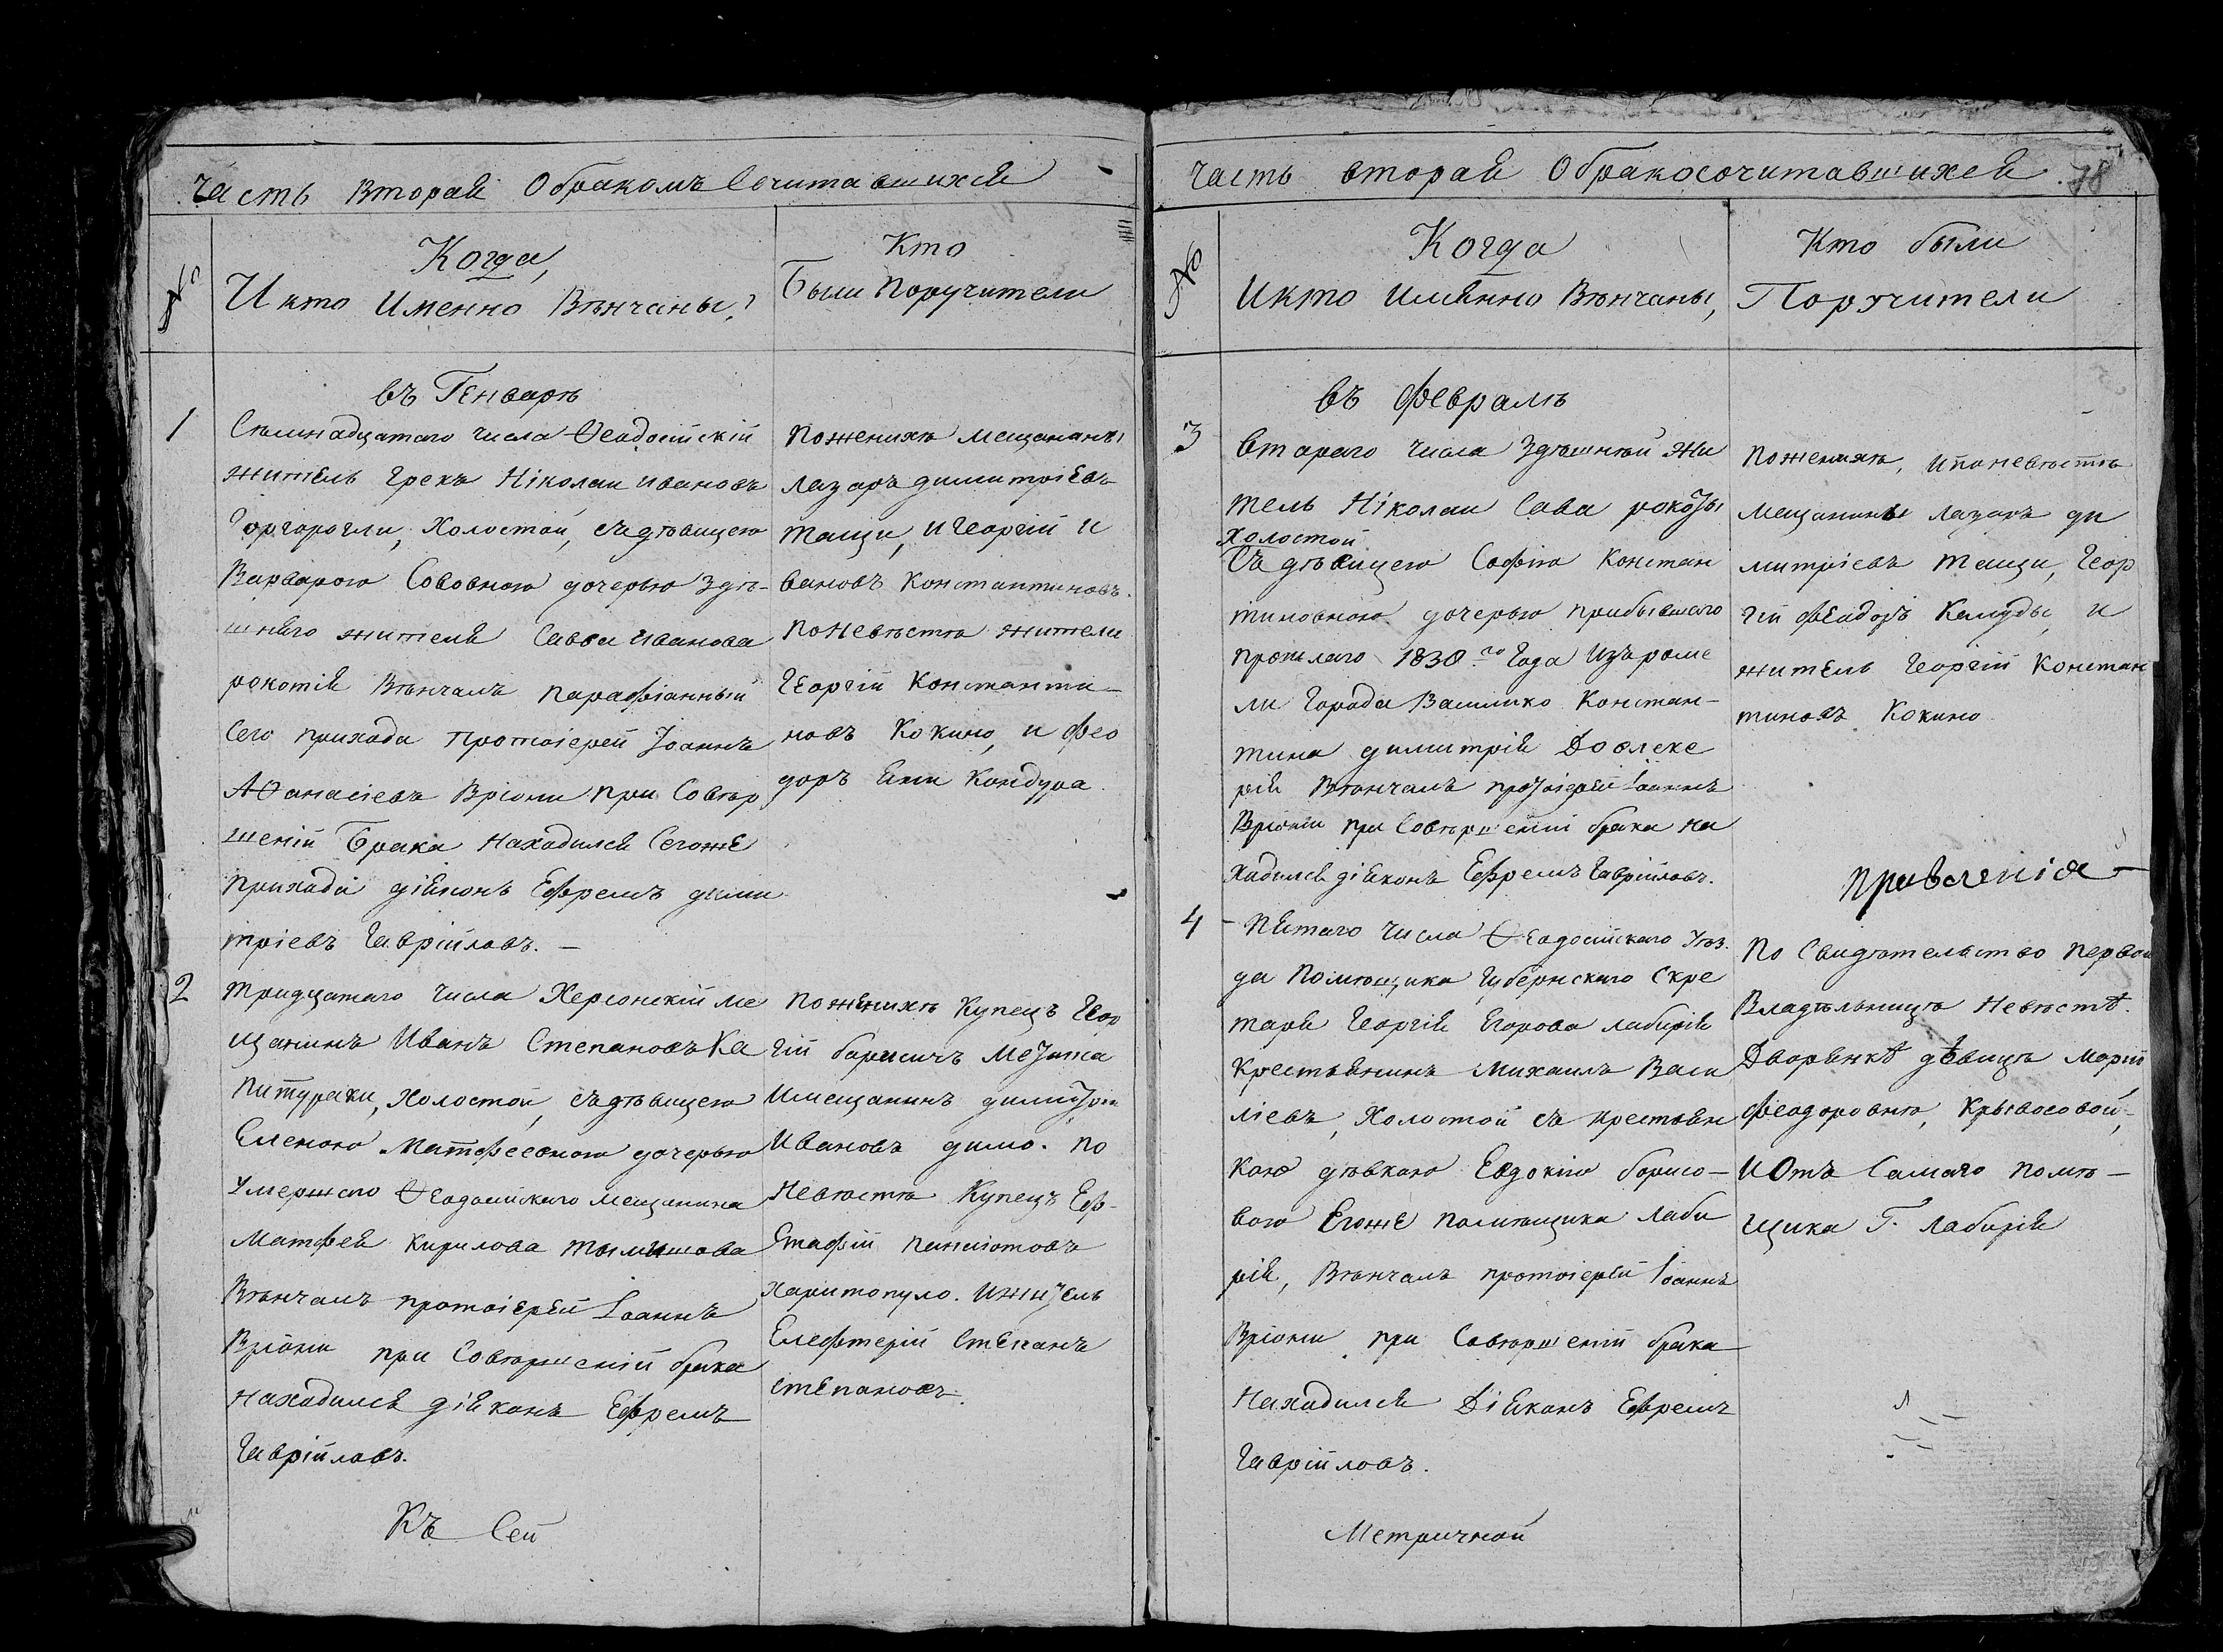 Часть Вторая О бракомъ Сочитавшихся
№
Когда,
И кто Именно Вѣнчаны,
Кто
Были Поручители
въ Генварѣ
1
Семнадцатаго числа Ѳеадосійскій
житель грекъ Ніколаи ивановъ
Горгорогли, Холостои, съ дѣвицею
Варварою Сововною дочерью здѣ-
шняго жителя Саввы иванова
рокотія Вѣнчалъ парафіанныи
Сего прихода Протоіереи Іоаннъ
Аѳанасіевъ Вріони При Совѣр
шеніи Брака Находился Сегоже
Прихода діяконъ Ефремъ дими
тріевъ Гавріиловъ. —
Поженихѣ мещананы
лазаръ димитріевъ
тащи, и Георгіи и
вановъ Константиновъ.
поневѣстѣ жители
Георгіи Константи-
новъ Кокино, и Фео
доръ Ени Кондура.
2
тридцатаго числа Херсонскіи ме
щанинъ Иванъ Степановъ Ка
питураки, Холостои, съ дѣвицею
Еленою Матфеевною дочерью
Умершаго Ѳеадосійскаго мещанина
Матфея Кирилова
Вѣнчалъ протоіереи Іоаннъ
Вріони при Совѣршеніи брака
Находился діяконъ Ефремъ
Гавріиловъ.
поженихѣ Купецъ Геор
гіи борисичъ
Имещанинъ
Ивановъ димо. По
Невѣстѣ Купецъ Ев-
стафіи панаіотовъ
Харитопуло. Ижитель
Елефтеріи Степанъ
степановъ.
Къ Сеи
Часть вторая О бракосочитавшихся
78
№
Когда
Икто Имянно Вѣнчаны,
Кто были
Поручители
въ Февралѣ
3
Втараго числа Здѣшнеи жи
тель Ніколаи Сава рокоты
Холостои
Съ дѣвицею Софіею Констан
тиновною дочерью прибывшаго
прошлаго 1830го Года Изъ руме
ли Города Василико Констан-
тина димитрія
Вѣнчалъ протоіереи Іоаннъ
Вріони при Совѣршеніи брака на
хадился діяконъ Ефремъ Гавріиловъ.
Поженихѣ, ипоневѣстѣ
Мещанины лазаръ ди
митріевъ тащи, Геор
гіи Феадоръ Калуды, и
житель Георгіи Констан
тиновъ Кокино
4
Пятаго числа Ѳеадосійскаго Уѣз
да Помѣщика Губернскаго Скре
таря Георгія Егорова лабирія
Крестьянинъ Михаилъ Васи
ліевъ, Холостои съ крестьян
кою дѣвкою Евдокію борисо-
вою Егоже помѣщика Лаби
рія, Вѣнчалъ протоіереи Іоаннъ
Вріони при Совѣршеніи брака
Находился Діяконъ Ефремъ
Гавріиловъ.
По Свидѣтельство первои
Владѣльницѣ Невѣстѣ.
Дворянкѣ дѣвицѣ Маріи
Феодоровнѣ, Крывосовой,
И Отъ Самаго помѣ-
щика Г. Лабирія
Метричнои
Правленія